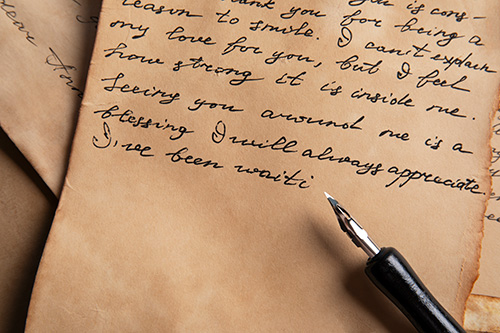 thank you for being a
reason to smile. I can't explain
my love for you, but I feel
how strong it is inside me.
Seeing you around me is a
blessing I will always appreciate.
I've been waiti
dear